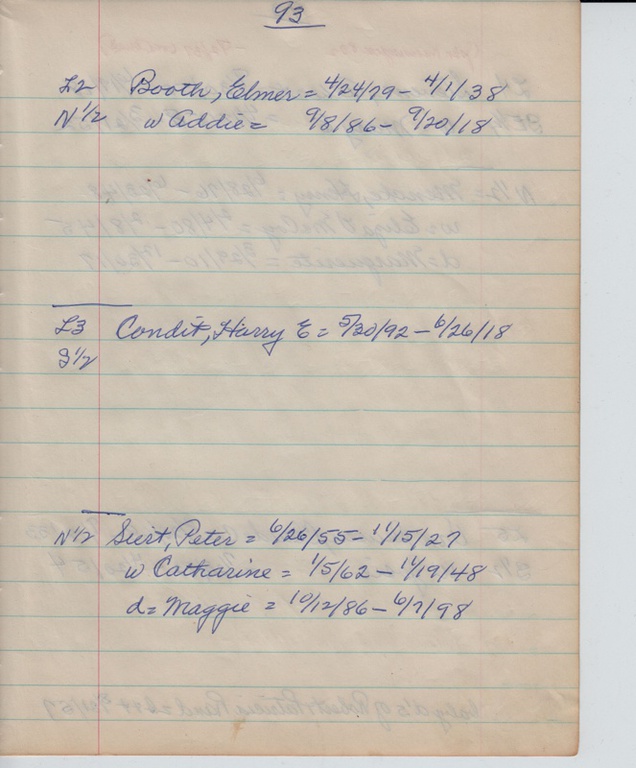 93
L2 Booth, Elmer = 4/24/79 - 4/1/38
N 1/2 w Addie = 9/8/86 - 9/20/18
L3 Condit, Harry E = 5/20/92 - 6/26/18
S 1/2
N 1/2 Peter = 6/26/55 - 11/15/27
w Catharine = 1/5/62 - 11/19/48
d = Maggie = 10/12/86 - 6/7/98